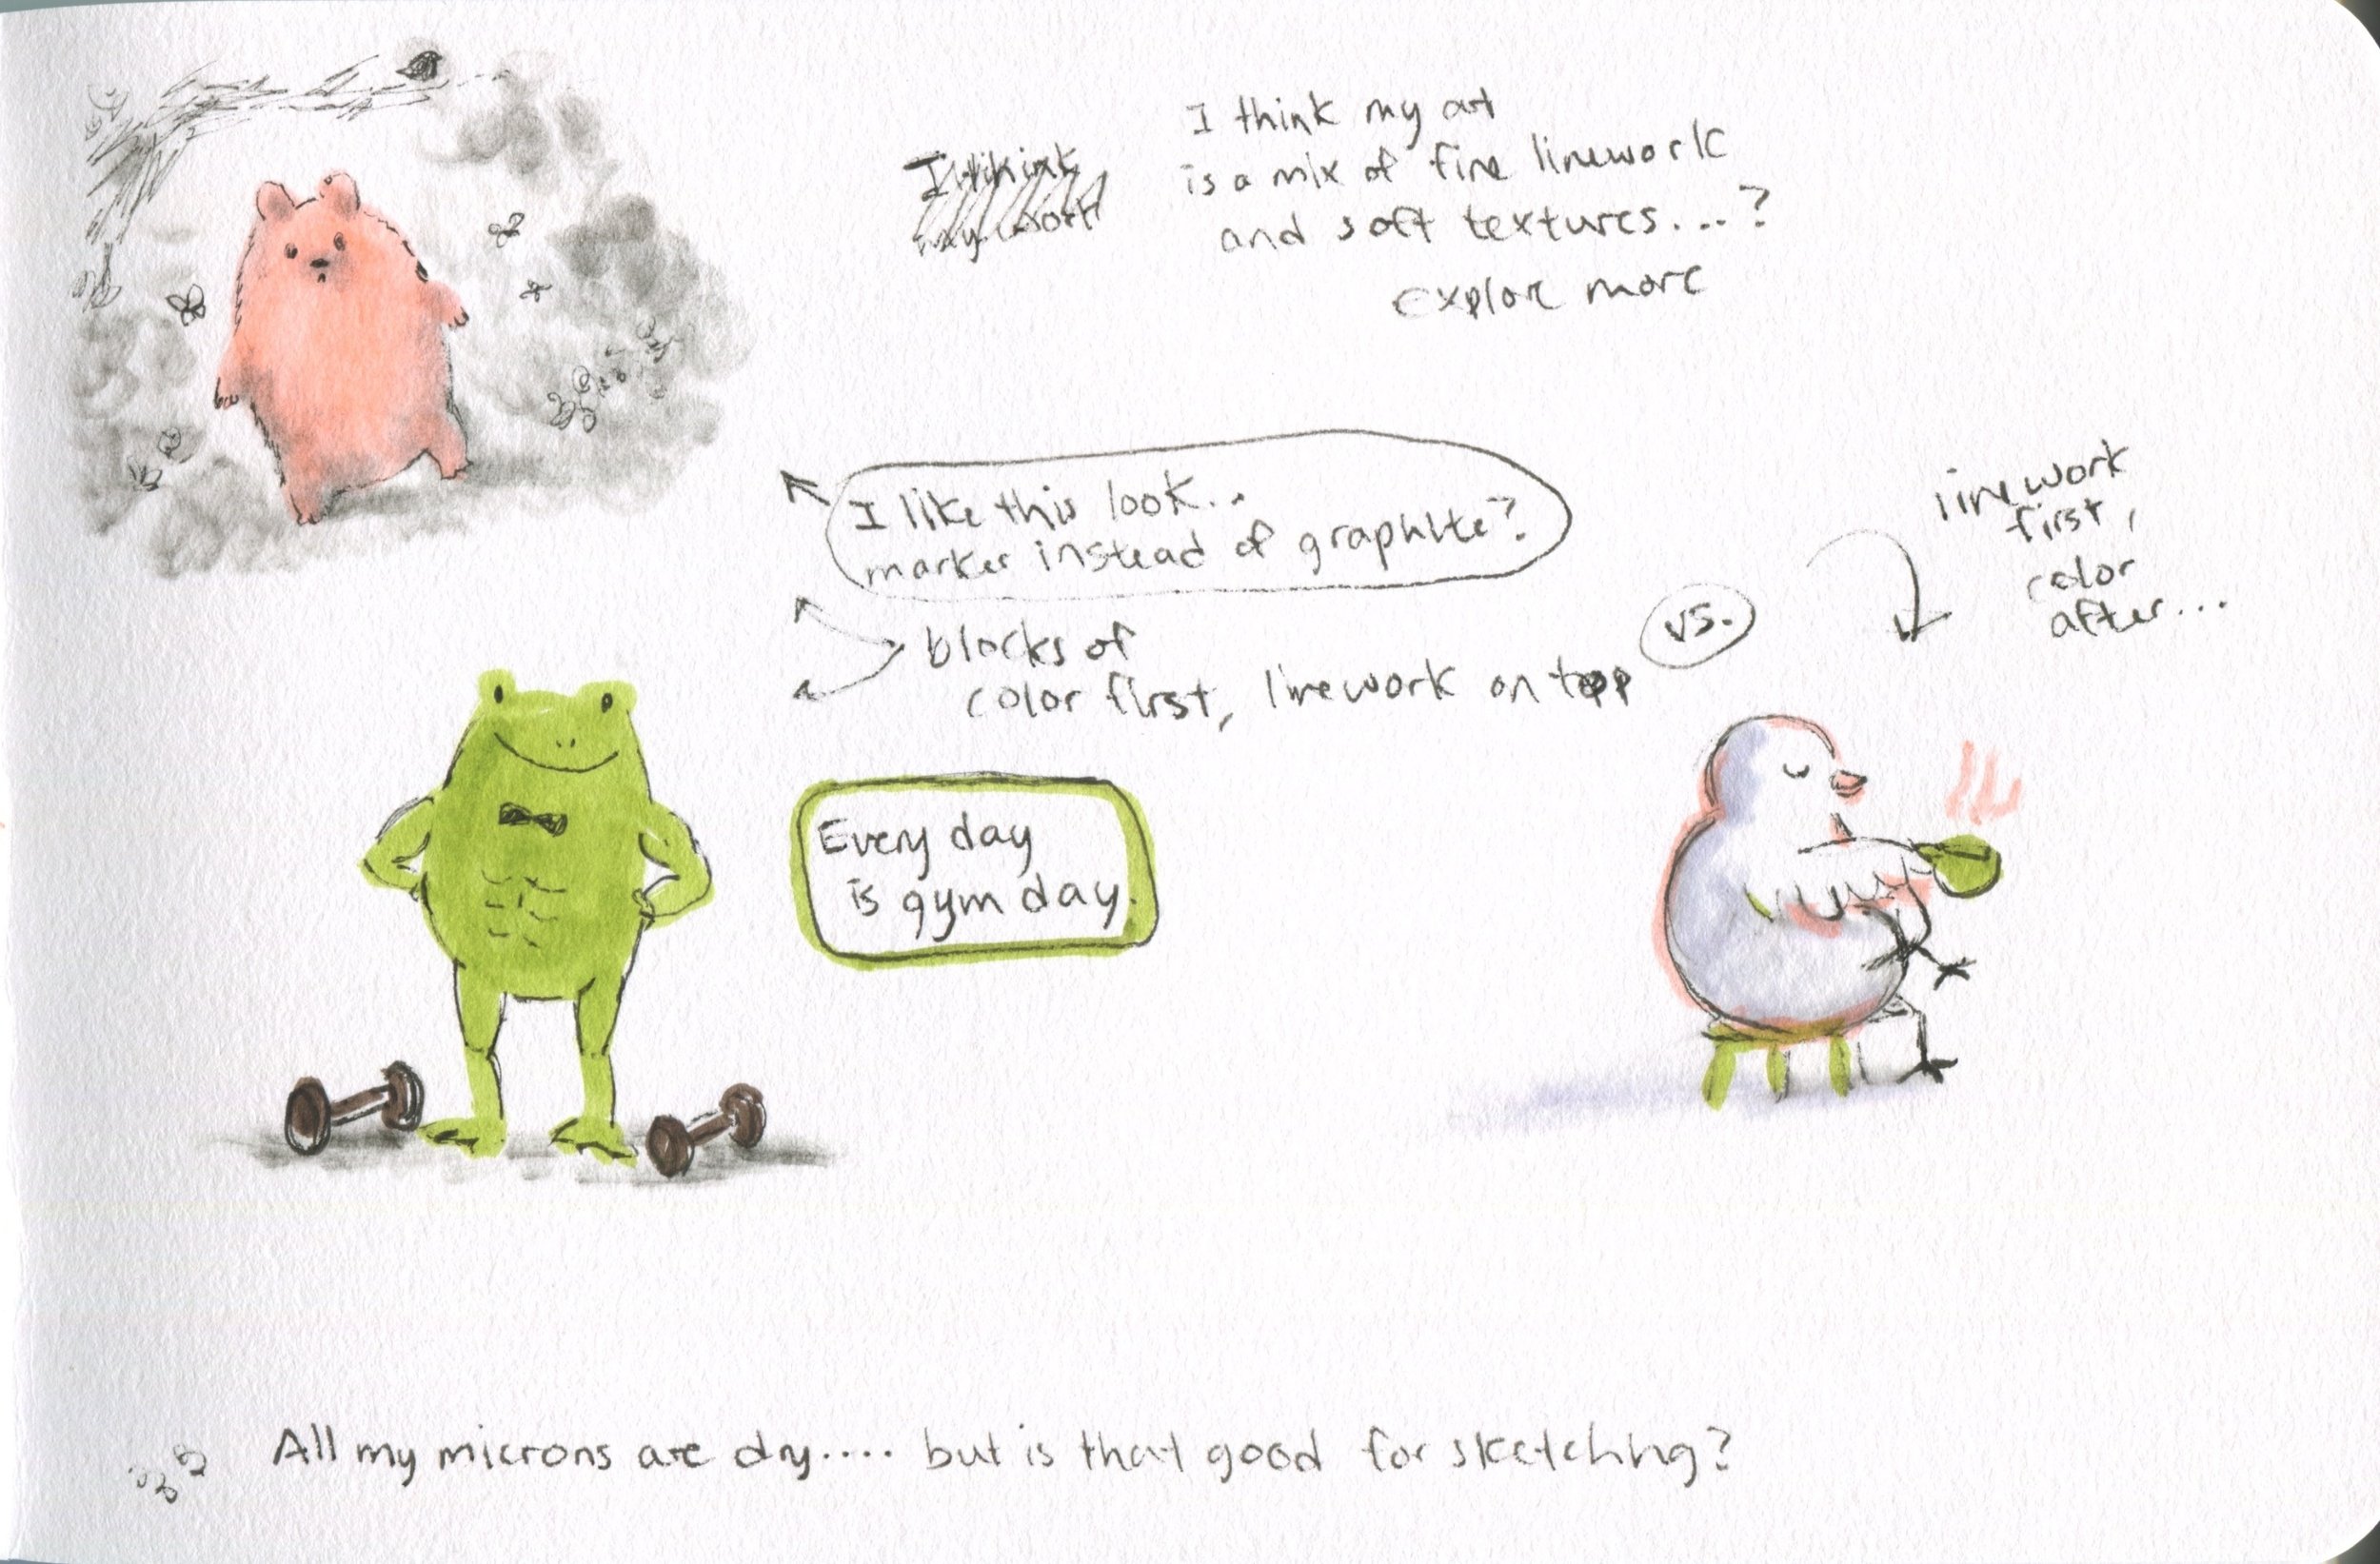 I think
my work
I think my art
is a mix of fine linework
and soft textures....?
explore more
I like this look..
marker instead of graphite?
blocks of
color first, linework on top
vs.
linework
first,
color
after...
Every day
is gym day.
All my microns are dry.... but is that good for sketching?